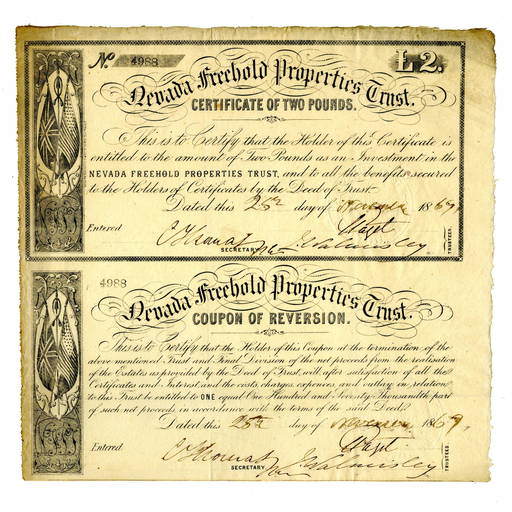 No. 4988 £2.
Nevada Freehold Properties Trust.
CERTIFICATE OF TWO POUNDS.
This is to Certify that the Holder of this Certificate is
entitled to the amount of Two Pounds as an Investment in the
NEVADA FREEHOLD PROPERTIES TRUST, and to all the benefits secured
to the Holders of Certificates by the Deed of Trust.
Dated this 25th day of November 1869.
Entered
SECRETARY
TRUSTEES.
4988
Nevada Freehold Properties Trust.
COUPON OF REVERSION.
This is to Certify that the Holder of this Coupon at the termination of the
above mentioned Trust and Final Division of the net proceeds from the realisation
of the Estates as provided by the Deed of Trust, will after satisfaction of all the
Certificates and Interest and the costs, charges, expences, and outlay in relation
to this Trust be entitled to ONE equal One Hundred and Seventy Thousandth part
of such net proceeds in accordance with the terms of the said Deed.
Dated this 25th day of November 1869.
Entered
SECRETARY
TRUSTEES.